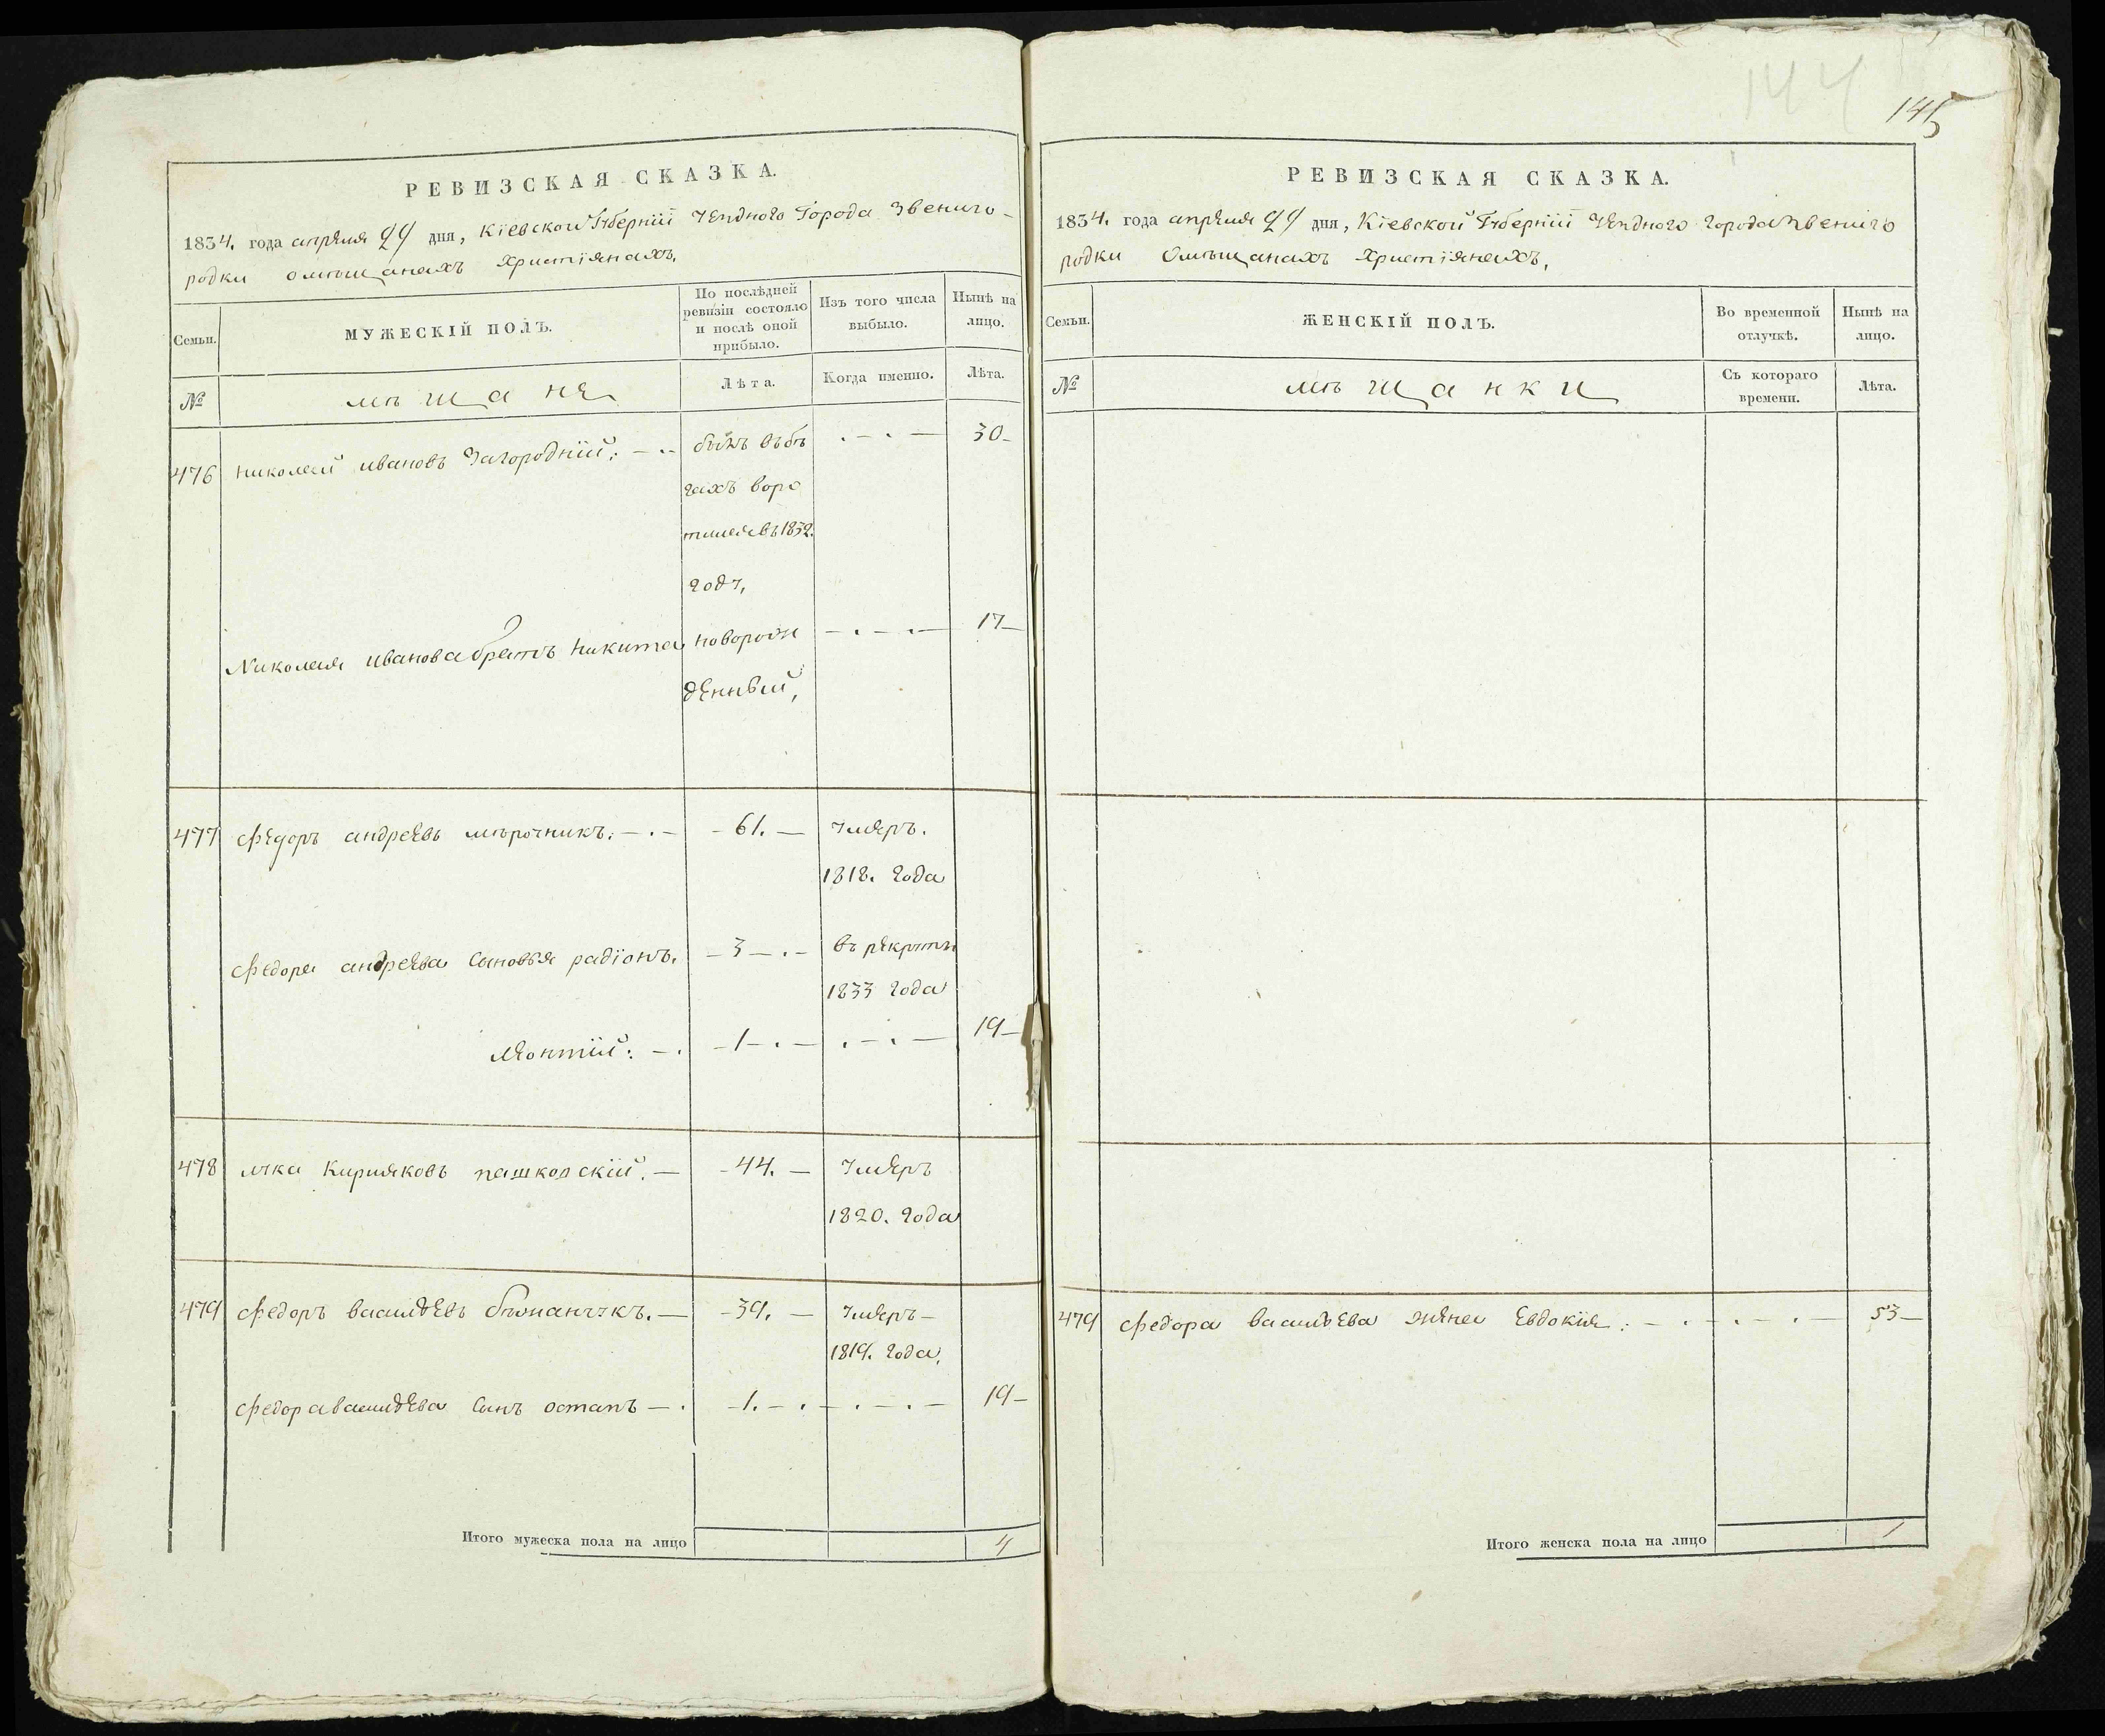 РЕВИЗСКАЯ СКАЗКА.
1834. года апреля 24 дня, Кіевской Губерніи уезднаго Города Звениго-
родки о мещанахъ христіянахъ.
Семьи.
МУЖЕСКІЙ ПОЛЪ.
По послѣдней ревизіи состояло и послѣ оной прибыло.
Изъ того числа выбыло.
Нынѣ на лицо.
№
мѣщане
Лѣта.
Когда именно.
Лѣта.
476 николай ивановъ Загородній: былъ въ бѣ 30
гахъ воро
тился въ 1832.
году,
Николая иванова братъ никита новорож 17
денный,
477 Федоръ андреевъ мірочникъ. 61. умеръ.
1818. года
Федора андреева сыновья радіонъ. 3 въ рекруты
1833 года
леонтій: 1 19
478 лука Кириаковъ пашковскій. 44. умеръ
1820. года
479 Федоръ васильевъ 39. умеръ
1819. года,
Федора васильева сынъ остапъ 1. 19
Итого мужеска пола на лицо 4
144
145
РЕВИЗСКАЯ СКАЗКА.
1834. года апреля 24 дня, Кіевской Губерніи уезднаго города Звениго
родки о мещанахъ христіянахъ.
Семьи.
ЖЕНСКІЙ ПОЛЪ.
Во временной отлучкѣ.
Нынѣ на лицо.
№
мѣщанки
Съ котораго времени.
Лѣта.
479 Федора васильева жена Евдокія: 53
Итого женска пола на лицо 1